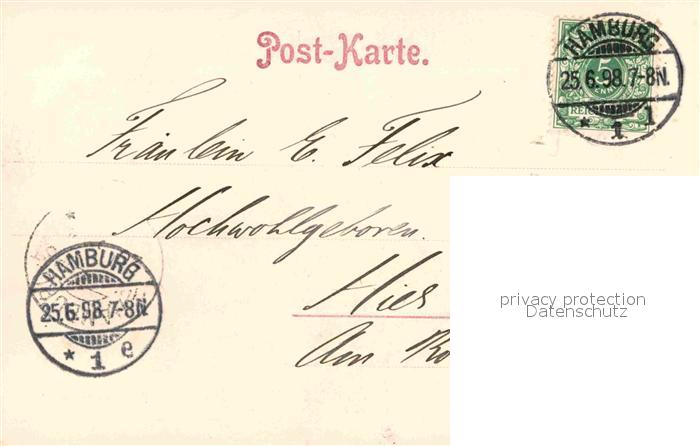 Post-Karte.
HAMBURG
25.6.98.7-8N.
* 1 1
5
Fräulein E. Felix
Hochwohlgeboren.
Hier
Am
HAMBURG
25.6.98.7-8N.
* 1 e
privacy protection
Datenschutz